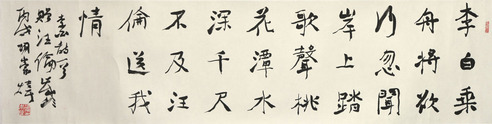 李白乘
舟將欲
行忽聞
岸上踏
歌聲桃
花潭水
深千尺
不及汪
倫送我
情
李白
贈汪倫
丙戌胡崇煒